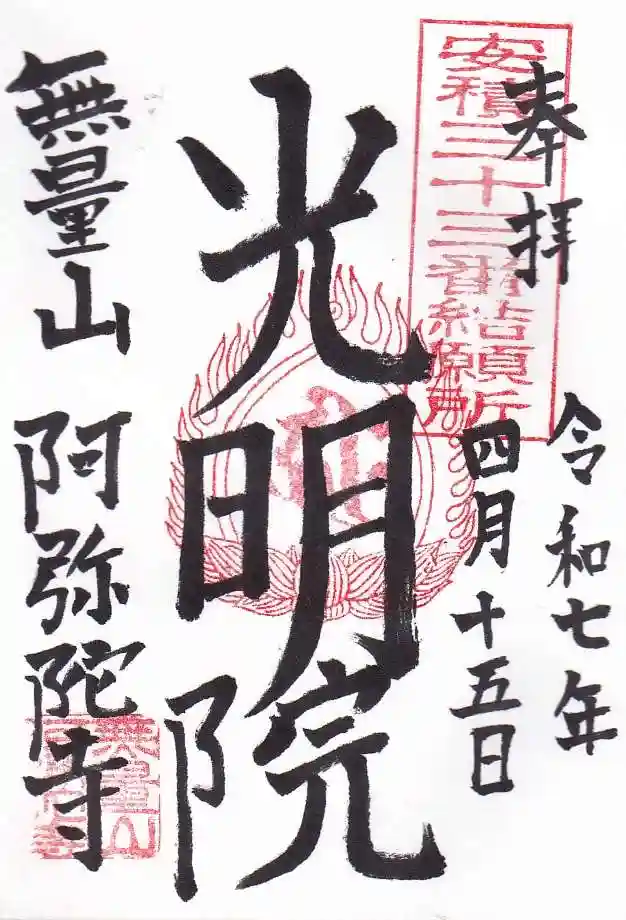 奉拝
安積三十三番結願所
令和七年
四月十五日
光明院
無量山 阿弥陀寺